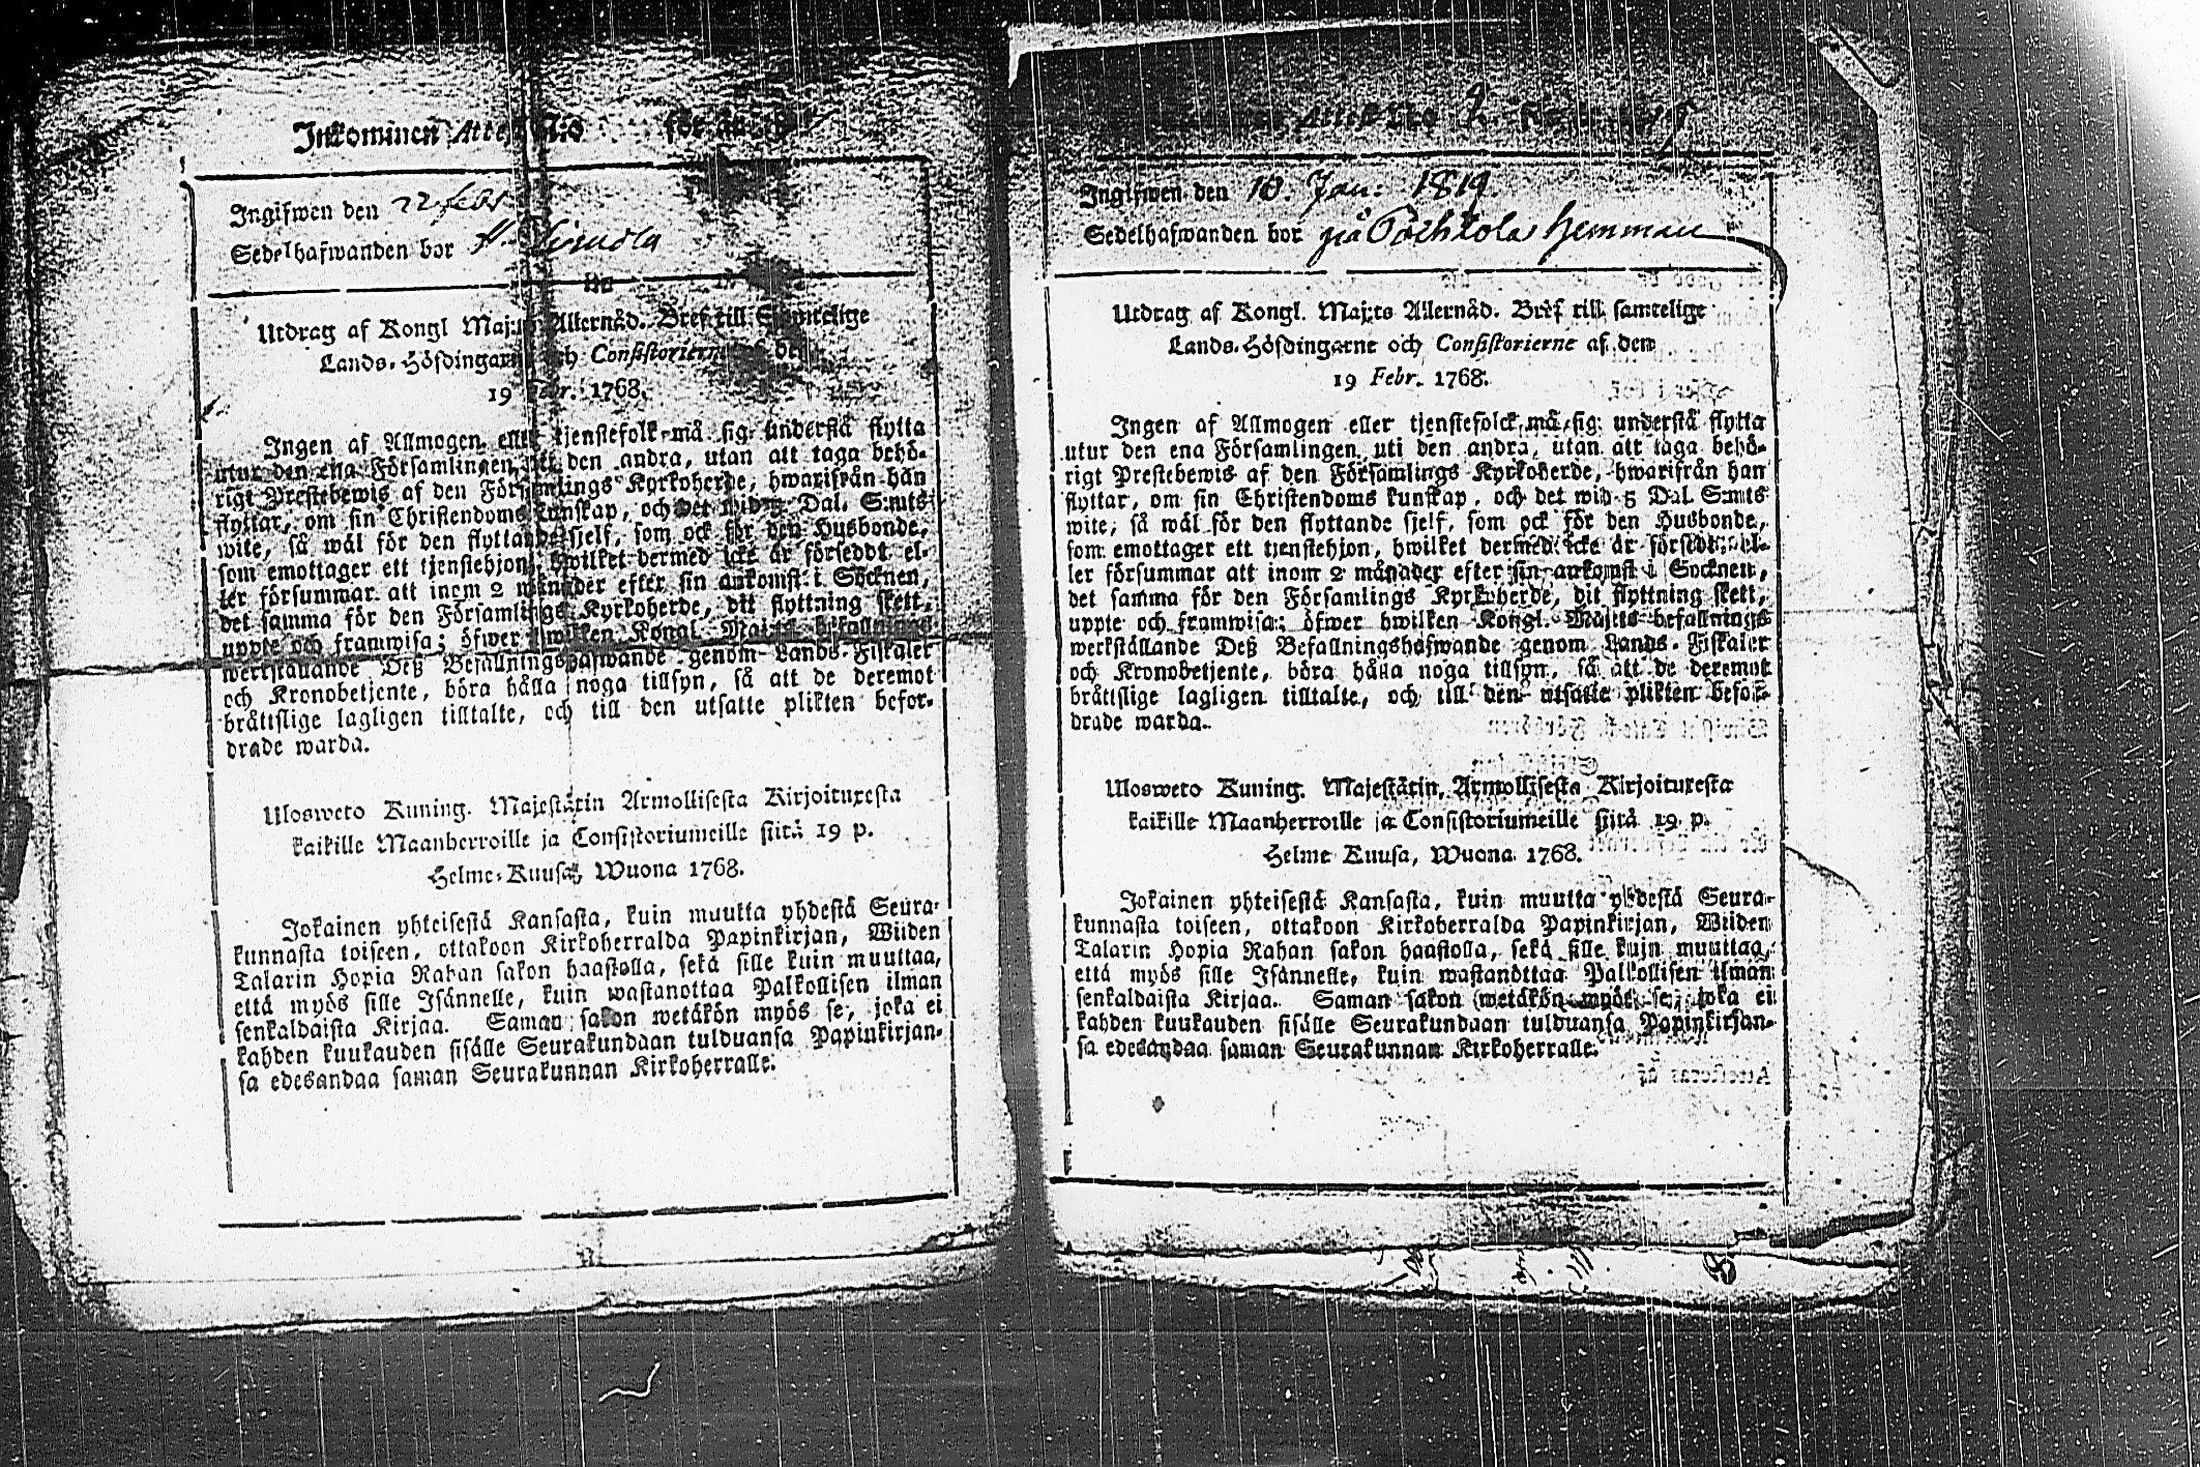 Inkommen Attest N:o för år
Ingifwen den 22 febr
Sedelhafwanden bor
Utdrag af Kongl Maj:ts Allernåd. Bref till Samtelige
Lands-Höfdingarne och Consistorierne af den
19 Febr. 1768.
Ingen af Allmogen eller tjenstefolk må sig understå flytta
utur den ena Församlingen uti den andra, utan att taga behö-
rigt Prestebewis af den Församlings Kyrkoherde, hwarifrån han
flyttar, om sin Christendoms kunskap, och det wid 5 Dal. S:mts
wite, så wäl för den flyttande sjelf, som ock för den Husbonde,
som emottager ett tjenstehjon, hwilket dermed icke är förseddt el-
ler försummar att inom 2 månader efter sin ankomst i Socknen,
det samma för den Församlings Kyrkoherde, dit flyttning skett,
uppte och framwisa; öfwer hwilken Kongl. Maj:ts befallnings
werkställande Deß Befallningshafwande genom Lands-Fiskaler
och Kronobetjente, böra hålla noga tillsyn, så att de deremot
bråttslige lagligen tilltalte, och till den utsatte plikten befor-
drade warda.
Ulosweto Kuning. Majestätin Armollisesta Kirjoituxesta
kaikille Maanherroille ja Consistoriumeille siitä 19 p.
Helme-Kuusa, Wuona 1768.
Jokainen yhteisestä Kansasta, kuin muutta yhdestä Seura-
kunnasta toiseen, ottakoon Kirkoherralda Papinkirjan, Wiiden
Talarin Hopia Rahan sakon haastolla, sekä sille kuin muuttaa,
että myös sille Isännelle, kuin wastanottaa Palkollisen ilman
senkaldaista Kirjaa. Saman sakon wetäkön myös se, joka ei
kahden kuukauden sisälle Seurakundaan tulduansa Papinkirjan-
sa edesandaa saman Seurakunnan Kirkoherralle.
Attest N:o
Ingifwen den 10. Jan: 1819.
Sedelhafwanden bor på Pochkola hemman
Utdrag af Kongl. Maj:ts Allernåd. Bref till samtelige
Lands-Höfdingarne och Consistorierne af den
19 Febr. 1768.
Ingen af Allmogen eller tjenstefolck må sig understå flytta
utur den ena Församlingen uti den andra, utan att taga behö-
rigt Prestebewis af den Församlings Kyrkoherde, hwarifrån han
flyttar, om sin Christendoms kunskap, och det wid 5 Dal S:mts
wite, så wäl för den flyttande sjelf, som ock för den Husbonde,
som emottager ett tjenstehjon, hwilket dermed icke är förseddt el-
ler försummar att inom 2 månader efter sin ankomst i Socknen,
det samma för den Församlings Kyrkoherde, dit flyttning skett,
uppte och framwisa; öfwer hwilken Kongl. Maj:ts befallnings
werkställande Deß Befallningshafwande genom Lands-Fiskaler
och Kronobetjente, böra hålla noga tillsyn, så att de deremot
bråttslige lagligen tilltalte, och till den utsatte plikten befor-
drade warda.
Ulosweto Kuning. Majestätin, Armollisesta Kirjoituxesta
kaikille Maanherroille ja Consistoriumeille siitä 19 p.
Helme Kuusa, Wuona 1768.
Jokainen yhteisestä Kansasta, kuin muutta yhdestä Seura-
kunnasta toiseen, ottakoon Kirkoherralda Papinkirjan, Wiiden
Talarin Hopia Rahan sakon haastolla, sekä sille kuin muuttaa,
että myös sille Isännelle, kuin wastanottaa Palkollisen ilman
senkaldaista Kirjaa. Saman sakon wetäkön myös se, joka ei
kahden kuukauden sisälle Seurakundaan tulduansa Papinkirjan-
sa edesandaa saman Seurakunnan Kirkoherralle.